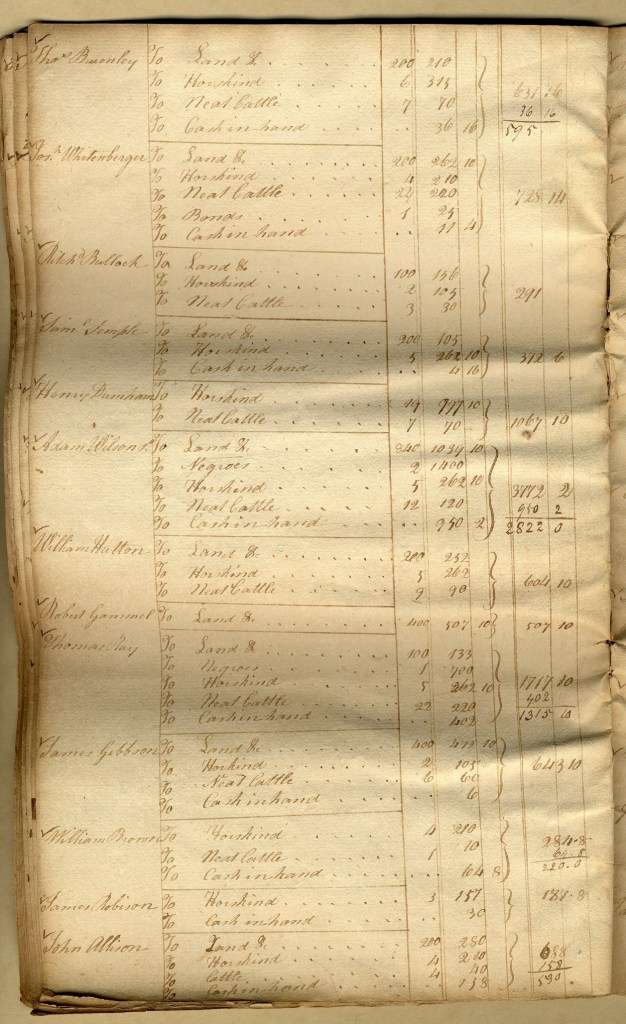 Thos Burnley To Land &. 200 210
To Horskind 6 315 631 16
To Neat Cattle 7 70 36 16
To Cash in hand .. 36 16 595
Josh Whitenberger To Land &. 200 262 10
To Horskind 4 210
To Neat Cattle 22 220 728 14
To Bonds 1 25
To Cash in hand .. 11 4
Bullock To Land &. 100 156
To Horskind 2 105 291
To Neat Cattle 3 30
Saml Temple To Land &. 200 105
To Horskind 5 262 10 372 6
To Cash in hand .. 4 16
Henry Durham To Horskind 19 997 10
To Neat Cattle 7 70 1067 10
Adam Wilson Sr To Land &. 840 1039 10
To Negroes 2 1400
To Horskind 5 262 10 3772 2
To Neat Cattle 12 120 950 2
To Cash in hand .. 950 2 2822 0
William Hutton To Land &. 200 252
To Horskind 5 262 604 10
To Neat Cattle 9 90
Robert Gammel To Land &. 400 507 10 507 10
Thomas Ray To Land & 100 133
To Negroes 1 700
To Horskind 5 262 10 1717 10
To Neat Cattle 22 220 402
To Cash in hand .. 402 1315 10
James Gibbson To Land &. 400 472 10
To Horskind 2 105 643 10
To Neat Cattle 6 60
To Cash in hand .. 6
William Brown To Horskind 4 210 284.8
To Neat Cattle 1 10 64.8
To Cash in hand .. 64 8 220.0
James Robison To Horskind 3 157 187.8
To Cash in hand .. 30
John Allison To Land &. 200 280
To Horskind 4 210 688
To Cattle 4 40 158
To Cash in hand 158 530